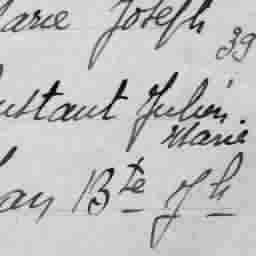 Marie Joseph
39
Constant Julien
Marie
Jean Bte Jh